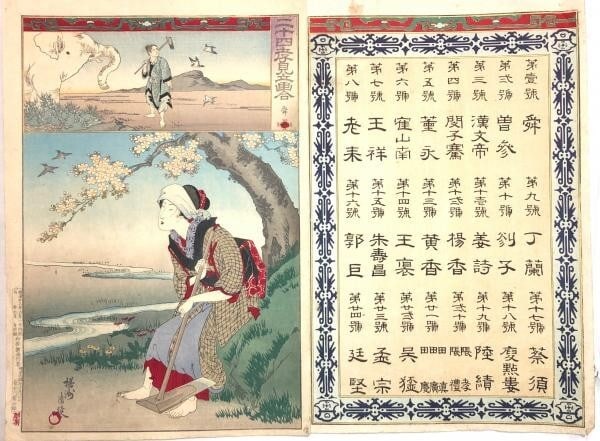 二十四孝見立画合
舜
楊洲周延
第壹號 舜 第九號 丁蘭 第十七號 蔡順
第弐號 曽参 第十號 剡子 第十八號 庾黔婁
第三號 漢文帝 第十壹號 姜詩 第十九號 陸績
第四號 閔子騫 第十弐號 楊香 第弐十號 張孝 張禮
第五號 董永 第十三號 黄香 第廿一號 田真 田廣 田慶
第六號 崔山南 第十四號 王裒 第廿弐號 呉猛
第七號 王祥 第十五號 朱壽昌 第廿三號 孟宗
第八號 老来 第十六號 郭巨 第廿四號 廷堅